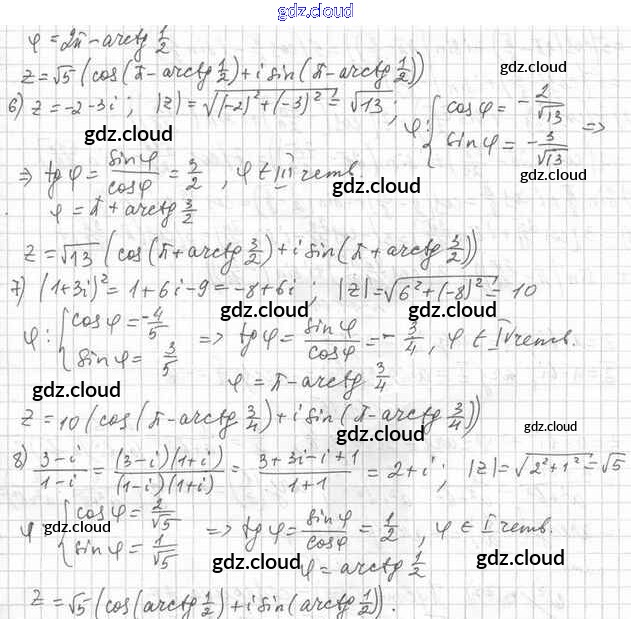 gdz.cloud
φ = 2π - arctg 1/2
z = √5 (cos(π - arctg 1/2) + i sin(π - arctg 1/2))
gdz.cloud
6) z = -2-3i ; |z| = √((-2)² + (-3)²) = √13 ; φ: { cos φ = - 2/√13
sin φ = - 3/√13 =>
gdz.cloud
gdz.cloud
=> tg φ = sin φ/cos φ = 3/2 , φ ∈ III четв.
gdz.cloud
gdz.cloud
φ = π + arctg 3/2
z = √13 (cos(π + arctg 3/2) + i sin(π + arctg 3/2))
7) (1+3i)² = 1+6i-9 = -8+6i ; |z| = √(6² + (-8)²) = 10
gdz.cloud
gdz.cloud
φ: { cos φ = -4/5
sin φ = 3/5 => tg φ = sin φ/cos φ = - 3/4 , φ ∈ IV четв.
gdz.cloud
φ = π - arctg 3/4
z = 10 (cos(π - arctg 3/4) + i sin(π - arctg 3/4))
gdz.cloud
gdz.cloud
8) 3-i/1-i = (3-i)(1+i)/(1-i)(1+i) = 3+3i-i+1/1+1 = 2+i ; |z| = √(2²+1²) = √5
φ { cos φ = 2/√5
sin φ = 1/√5 => tg φ = sin φ/cos φ = 1/2 , φ ∈ I четв.
gdz.cloud
gdz.cloud
gdz.cloud
φ = arctg 1/2
z = √5 (cos(arctg 1/2) + i sin(arctg 1/2)).